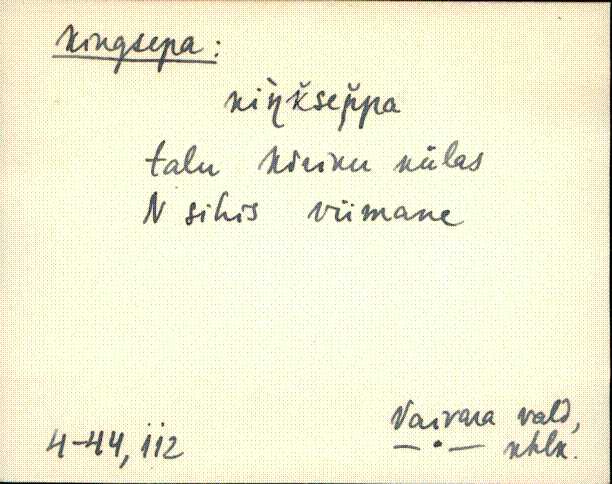 Kingsepa:
kiǹkšep̌pa
talu Kõriku külas
N sihis viimane
4-44, 112
Vaivara vald,
— • — khlk.